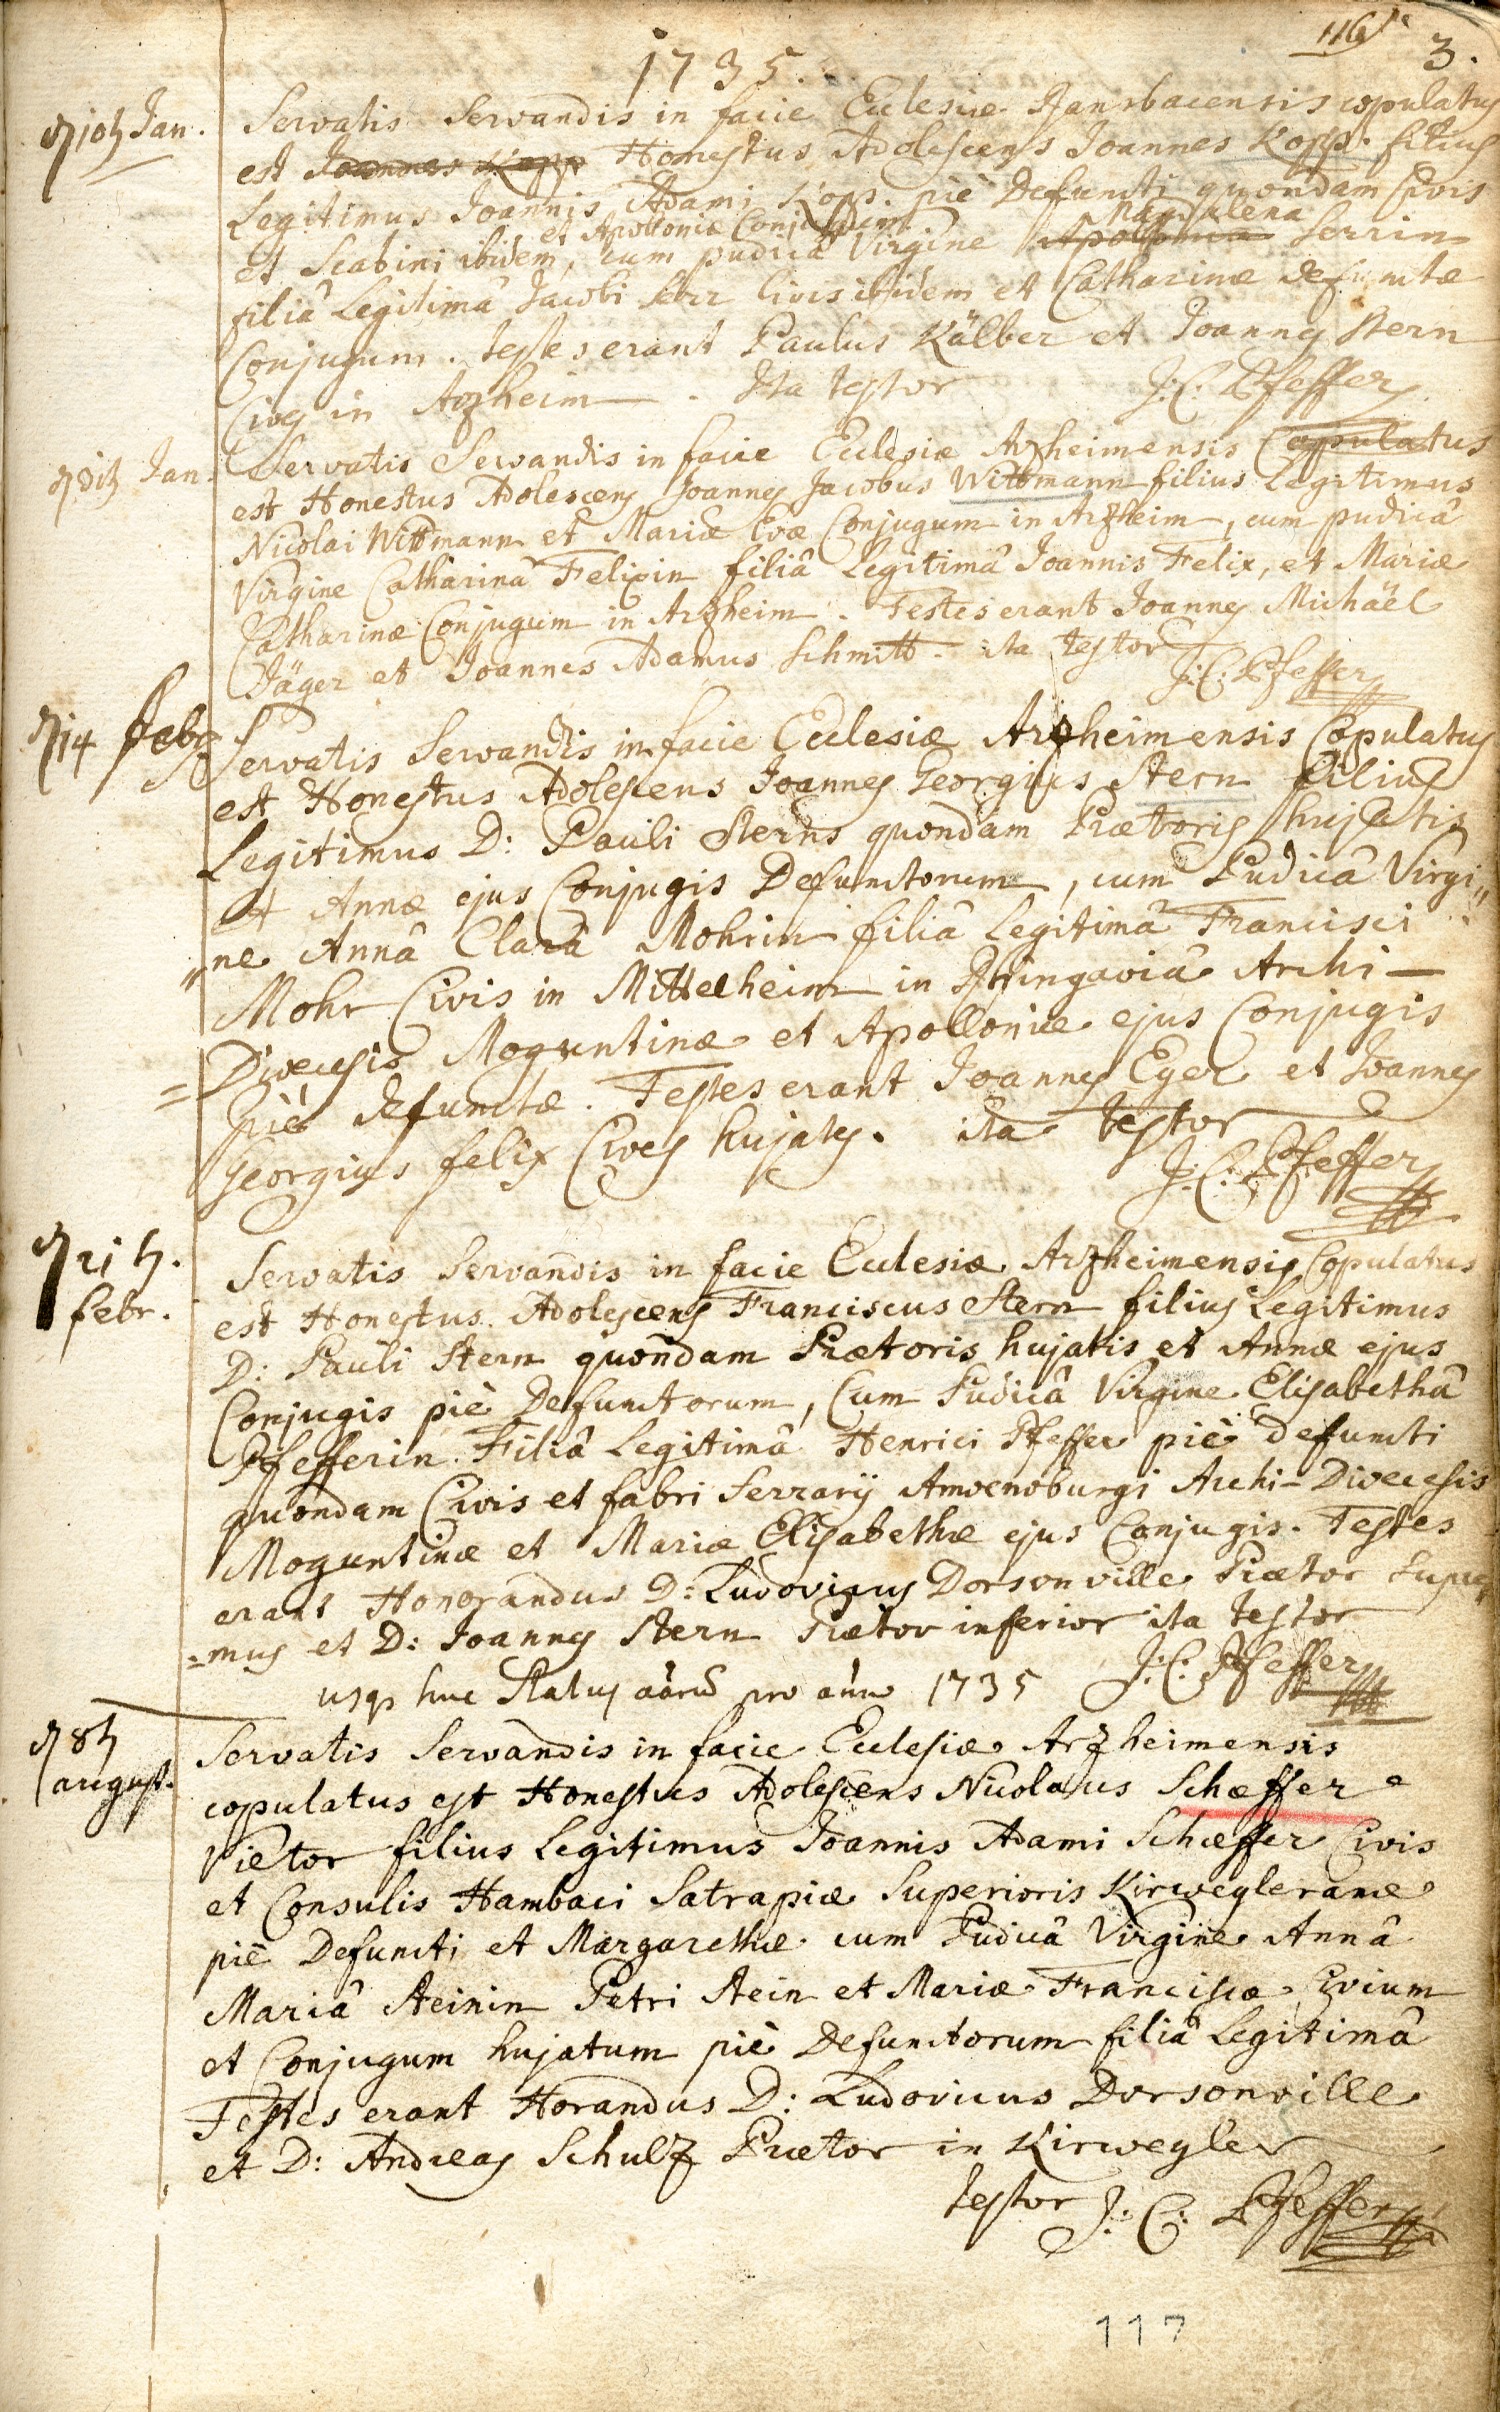 116
3.
1735.
10 Jan.
Servatis Servandis in facie Ecclesiæ Ransbacensis copulatus
est Joannes Kopp Honestus Adolescens Joannes Kopp. filius
Legitimus Joannis Adami Kopp. piè Defuncti quondam Civis
et Apolloniæ Conjugum Magdalena
et Scabini ibidem, cum pudicâ Virgine Apollonia Serrin
filiâ Legitimâ Jacobi Serr Civis ibidem et Catharinæ defunctæ
Conjugum. testes erant Paulus Kälber et Joannes Stern
Cives in Arzheim. Ita testor J: C: Pfeffer
Jan.
Servatis Servandis in facie Eclesiæ Arzheimensis Copulatus
est Honestus Adolescens Joannes Jacobus Wittmann filius Legitimus
Nicolai Wittmann et Mariæ Evæ Conjugum in Arzheim, cum pudicâ
Virgine Catharinâ Felixin filiâ Legitimâ Joannis Felix, et Mariæ
Catharinæ Conjugum in Arzheim. Testes erant Joannes Michaël
Jäger et Joannes Adamus Schmitt. ita testor
J: C: Pfeffer
14 Febr
Servatis Servandis in facie Ecclesiæ Arzheimensis Copulatus
est Honestus Adolescens Joannes Georgius Stern filius
Legitimus D: Pauli Sterns quondam Prætoris hujatis
et Annæ ejus Conjugis Defunctorum, cum Pudicâ Virgi„
„ne Annâ Clarâ Mohrin filiâ Legitimâ Francisci
Mohr Civis in Mittelheim in Rhingaviâ Archi—
=Dioecesis Moguntinæ et Apolloniæ ejus Conjugis
piè defunctæ. Testes erant Joannes Eger et Joannes
Georgius felix Cives hujates. ita testor
J: C: Pfeffer
21
febr.
Servatis Servandis in facie Ecclesiæ Arzheimensis Copulatus
est Honestus Adolescens Franciscus Stern filius Legitimus
D: Pauli Stern quondam Prætoris hujatis et Annæ ejus
Conjugis piè Defunctorum, Cum Pudicâ Virgine Elisabethâ
Pfefferin Filiâ Legitimâ Henrici Pfeffer piè defuncti
quondam Civis et fabri Serrarij Amoenoburgi Archi-Dioecesis
Moguntinæ et Mariæ Elisabethæ ejus Conjugis. Testes
erant Honorandus D: Ludovicus Dorsonville Prætor Supre
=mus et D: Joannes Stern Prætor inferior ita testor
J: C: Pfeffer
usq huc Status pro año 1735
8
august.
Servatis Servandis in facie Ecclesiæ Arzheimensis
copulatus est Honestus Adolescens Nicolaus Schæffer
Viëtor filius Legitimus Joannis Adami Schæffer Civis
et Consulis Hambaci Satrapiæ Superioris Kirwegleranæ
piè Defuncti et Margarethæ cum Pudicâ Virgine Annâ
Mariâ Steinin Petri Stein et Mariæ Franciscæ Civium
et Conjugum hujatum piè Defunctorum filiâ Legitimâ
Testes erant Horandus D: Ludovicus Dorsonville
et D: Andreas Schulz Prætor in Kirwegler
testor J: C: Pfeffer
117